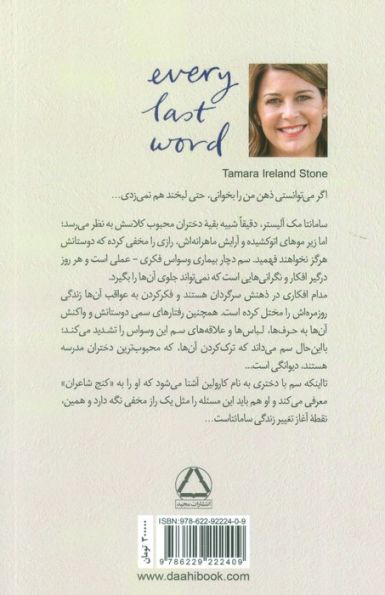 every
last
word
Tamara Ireland Stone
اگر می‌توانستی ذهن من را بخوانی، حتی لبخند هم نمی‌زدی...
سامانتا مک آلیستر، دقیقاً شبیه بقیۀ دختران محبوب کلاسش به نظر می‌رسد؛
اما زیر موهای اتوکشیده و آرایش ماهرانه‌اش، رازی را مخفی کرده که دوستانش
هرگز نخواهند فهمید. سم دچار بیماری وسواس فکری - عملی است و هر روز
درگیر افکار و نگرانی‌هایی است که نمی‌تواند جلوی آن‌ها را بگیرد.
مدام افکاری در ذهنش سرگردان هستند و فکرکردن به عواقب آن‌ها زندگی
روزمره‌اش را مختل کرده است. همچنین رفتارهای سمی دوستانش و واکنش
آن‌ها به حرف‌ها، لباس‌ها و علاقه‌های سم این وسواس را تشدید می‌کند؛
بااین‌حال سم می‌داند که ترک‌کردن آن‌ها، که محبوب‌ترین دختران مدرسه
هستند، دیوانگی است...
تااینکه سم با دختری به نام کارولین آشنا می‌شود که او را به «کنج شاعران»
معرفی می‌کند و او هم باید این مسئله را مثل یک راز مخفی نگه دارد و همین،
نقطۀ آغاز تغییر زندگی سامانتاست...
انتشارات مجید
۳۰۰۰۰۰ تومان
ISBN: 978-622-92224-0-9
9 786229 222409
www.daahibook.com